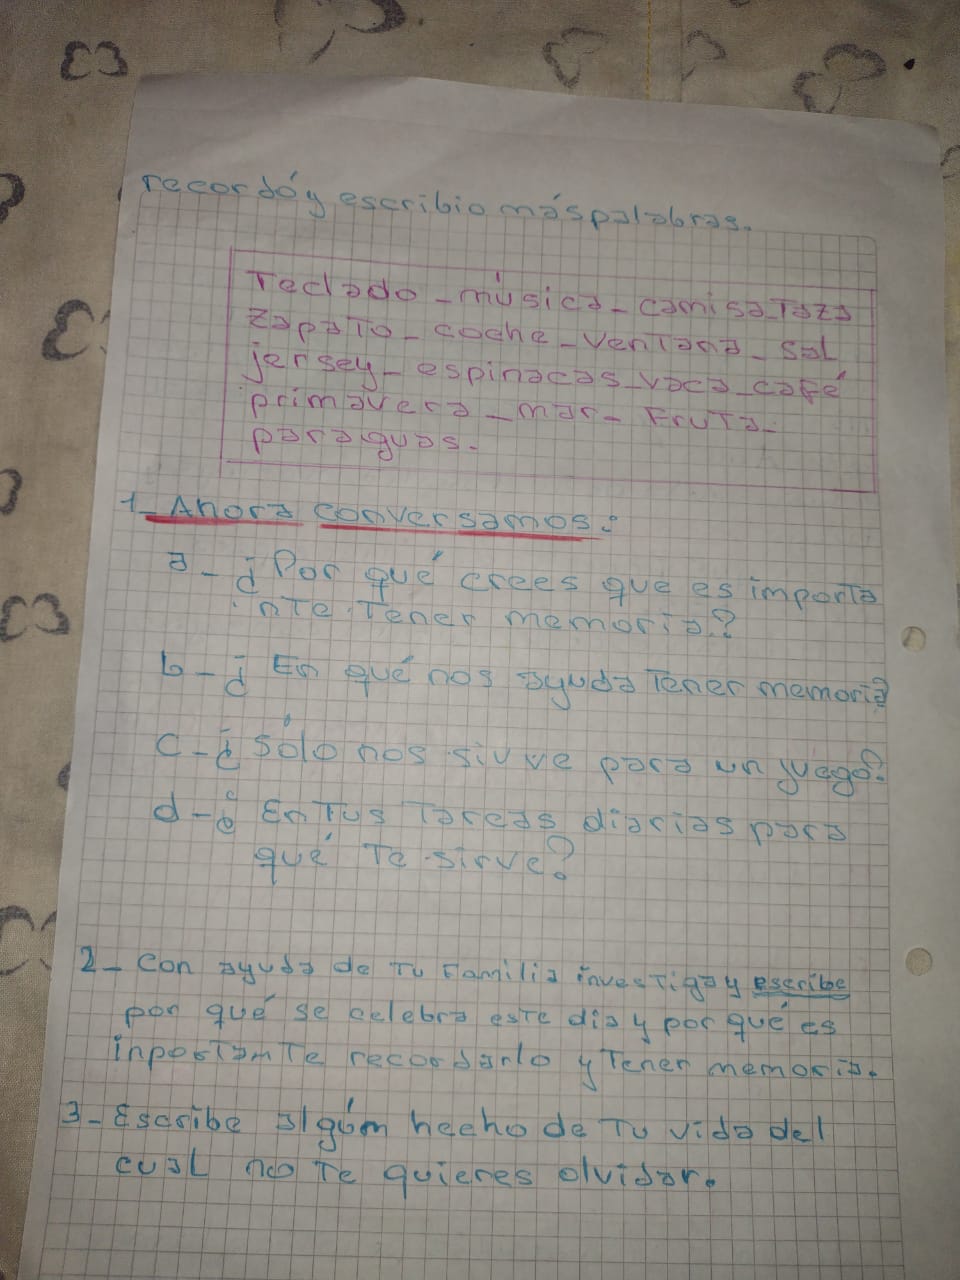 recordó y escribio más palabras.
Teclado - música - camisa - Taza
zapato - coche - ventana - sal
jersey - espinacas - vaca - café
primavera - mar - Fruta -
paraguas.
1- Ahora conversamos:
a- ¿Por qué crees que es importa
nte tener memoria?
b- ¿En qué nos ayuda tener memoria?
c- ¿Sólo nos sivve para un juego?
d- ¿En tus tareas diarias para
qué te sirve?
2- Con ayuda de tu familia investiga y escribe
por qué se celebra este dia y por qué es
inportante recordarlo y tener memoria.
3- Escribe algúm hecho de tu vida del
cual no te quieres olvidar.